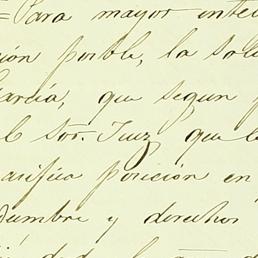 = Para mayor inteli
ción posible, la solu
García, que segun p
l Sor. Juez que la
acífica posicion en
dumbre y derechos